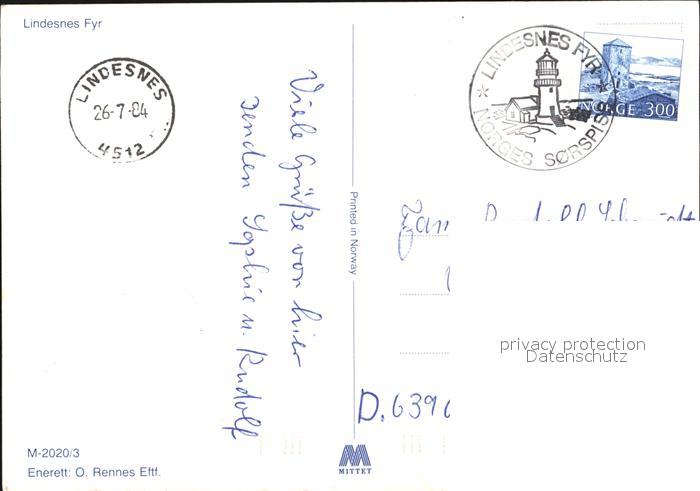 Lindesnes Fyr
LINDESNES
26-7-84
4512
LINDESNES FYR
NORGES SØRSPISS
NORGE 300
Viele Grüße von hier
senden Sophie u. Rudolf
Printed in Norway
Fam
privacy protection
Datenschutz
D. 639
M-2020/3
Enerett: O. Rennes Eftf.
MITTET